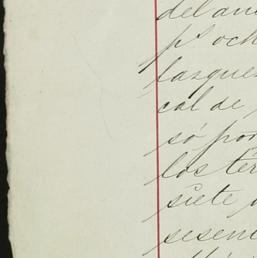 del an
ps och
las que
cal de
só por
los ter
siete
sesen